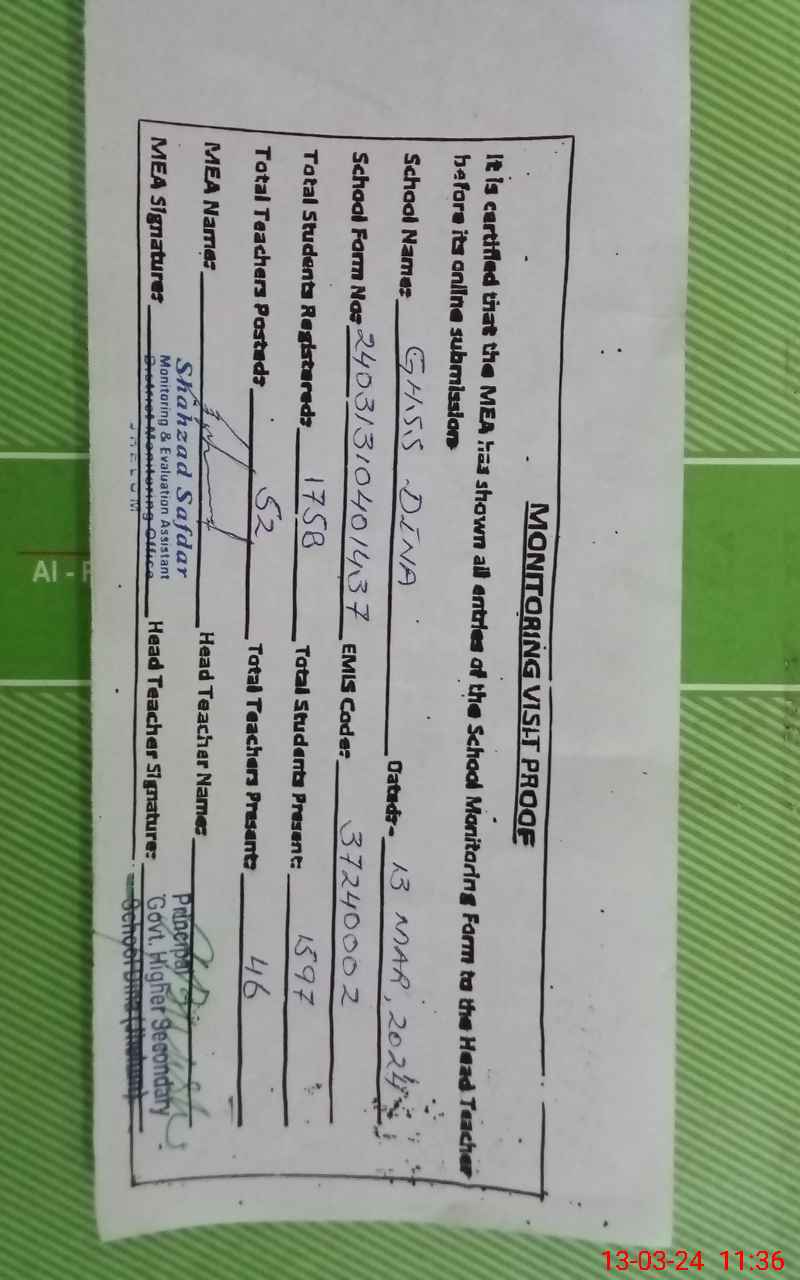 MONITORING VISIT PROOF
It is certified that the MEA has shown all entries of the School Monitoring Form to the Head Teacher
before its online submission
School Name: GHSS DINA Dated:- 13 MAR, 2024
School Form No: 24031310401437 EMIS Code: 37240002
Total Students Registered: 1758 Total Students Present: 1597
Total Teachers Posted: 52 Total Teachers Present: 46
MEA Name: Head Teacher Name:
MEA Signature: Head Teacher Signature:
Shahzad Safdar
Monitoring & Evaluation Assistant
District Monitoring Office
JHELUM
Principal
Govt. Higher Secondary
School Dina (Jhelum)
Al -
13-03-24 11:36